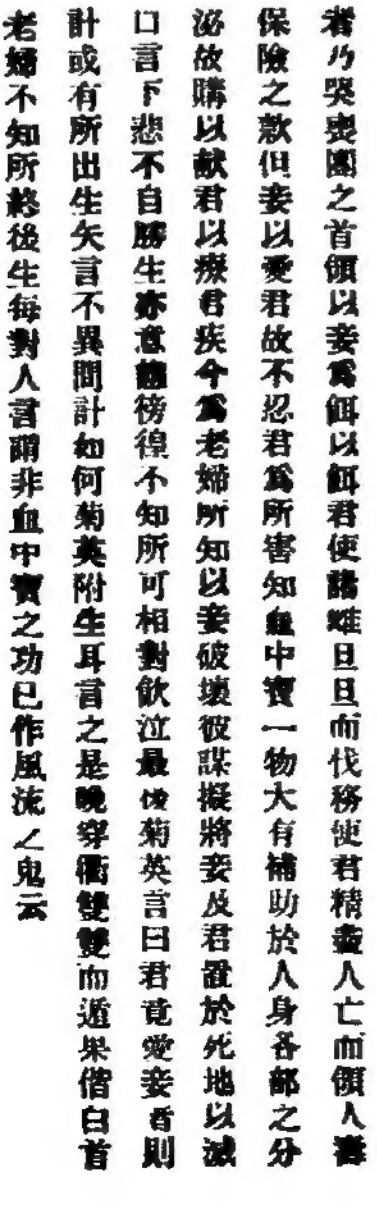 者乃哭喪團之首領以妾爲餌以餌君使諸雌旦旦而伐務使君精盡人亡而領人壽
保險之款但妾以愛君故不忍君爲所害知血中寶一物大有補助於人身各部之分
泌故購以獻君以療君疾今爲老婦所知以妾破壞彼謀擬將妾及君置於死地以滅
口言下悲不自勝生亦意徬徨不知所可相對飲泣最後菊英言曰君竟愛妾者則
計或有所出生矢言不異問計如何菊英附生耳言之是晚穿衢雙雙而遁果偕白首
老婦不知所終後生每對人言謂非血中寶之功已作風流之鬼云